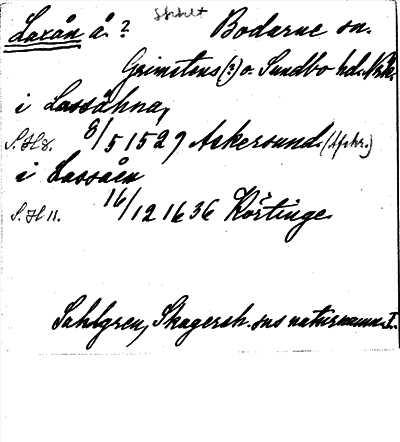 Laxån å.? Bodarne sn.
Grimstens(?) o. Sundbo hd. Nrk.
i Lassåhna,
S.H 8. 8/5 1529 Askersund. (Afskr.)
i Lassåen
S.H 11. 16/12 1636 Körtinge.
Sahlgren, Skagersh. sns naturnamn. I.